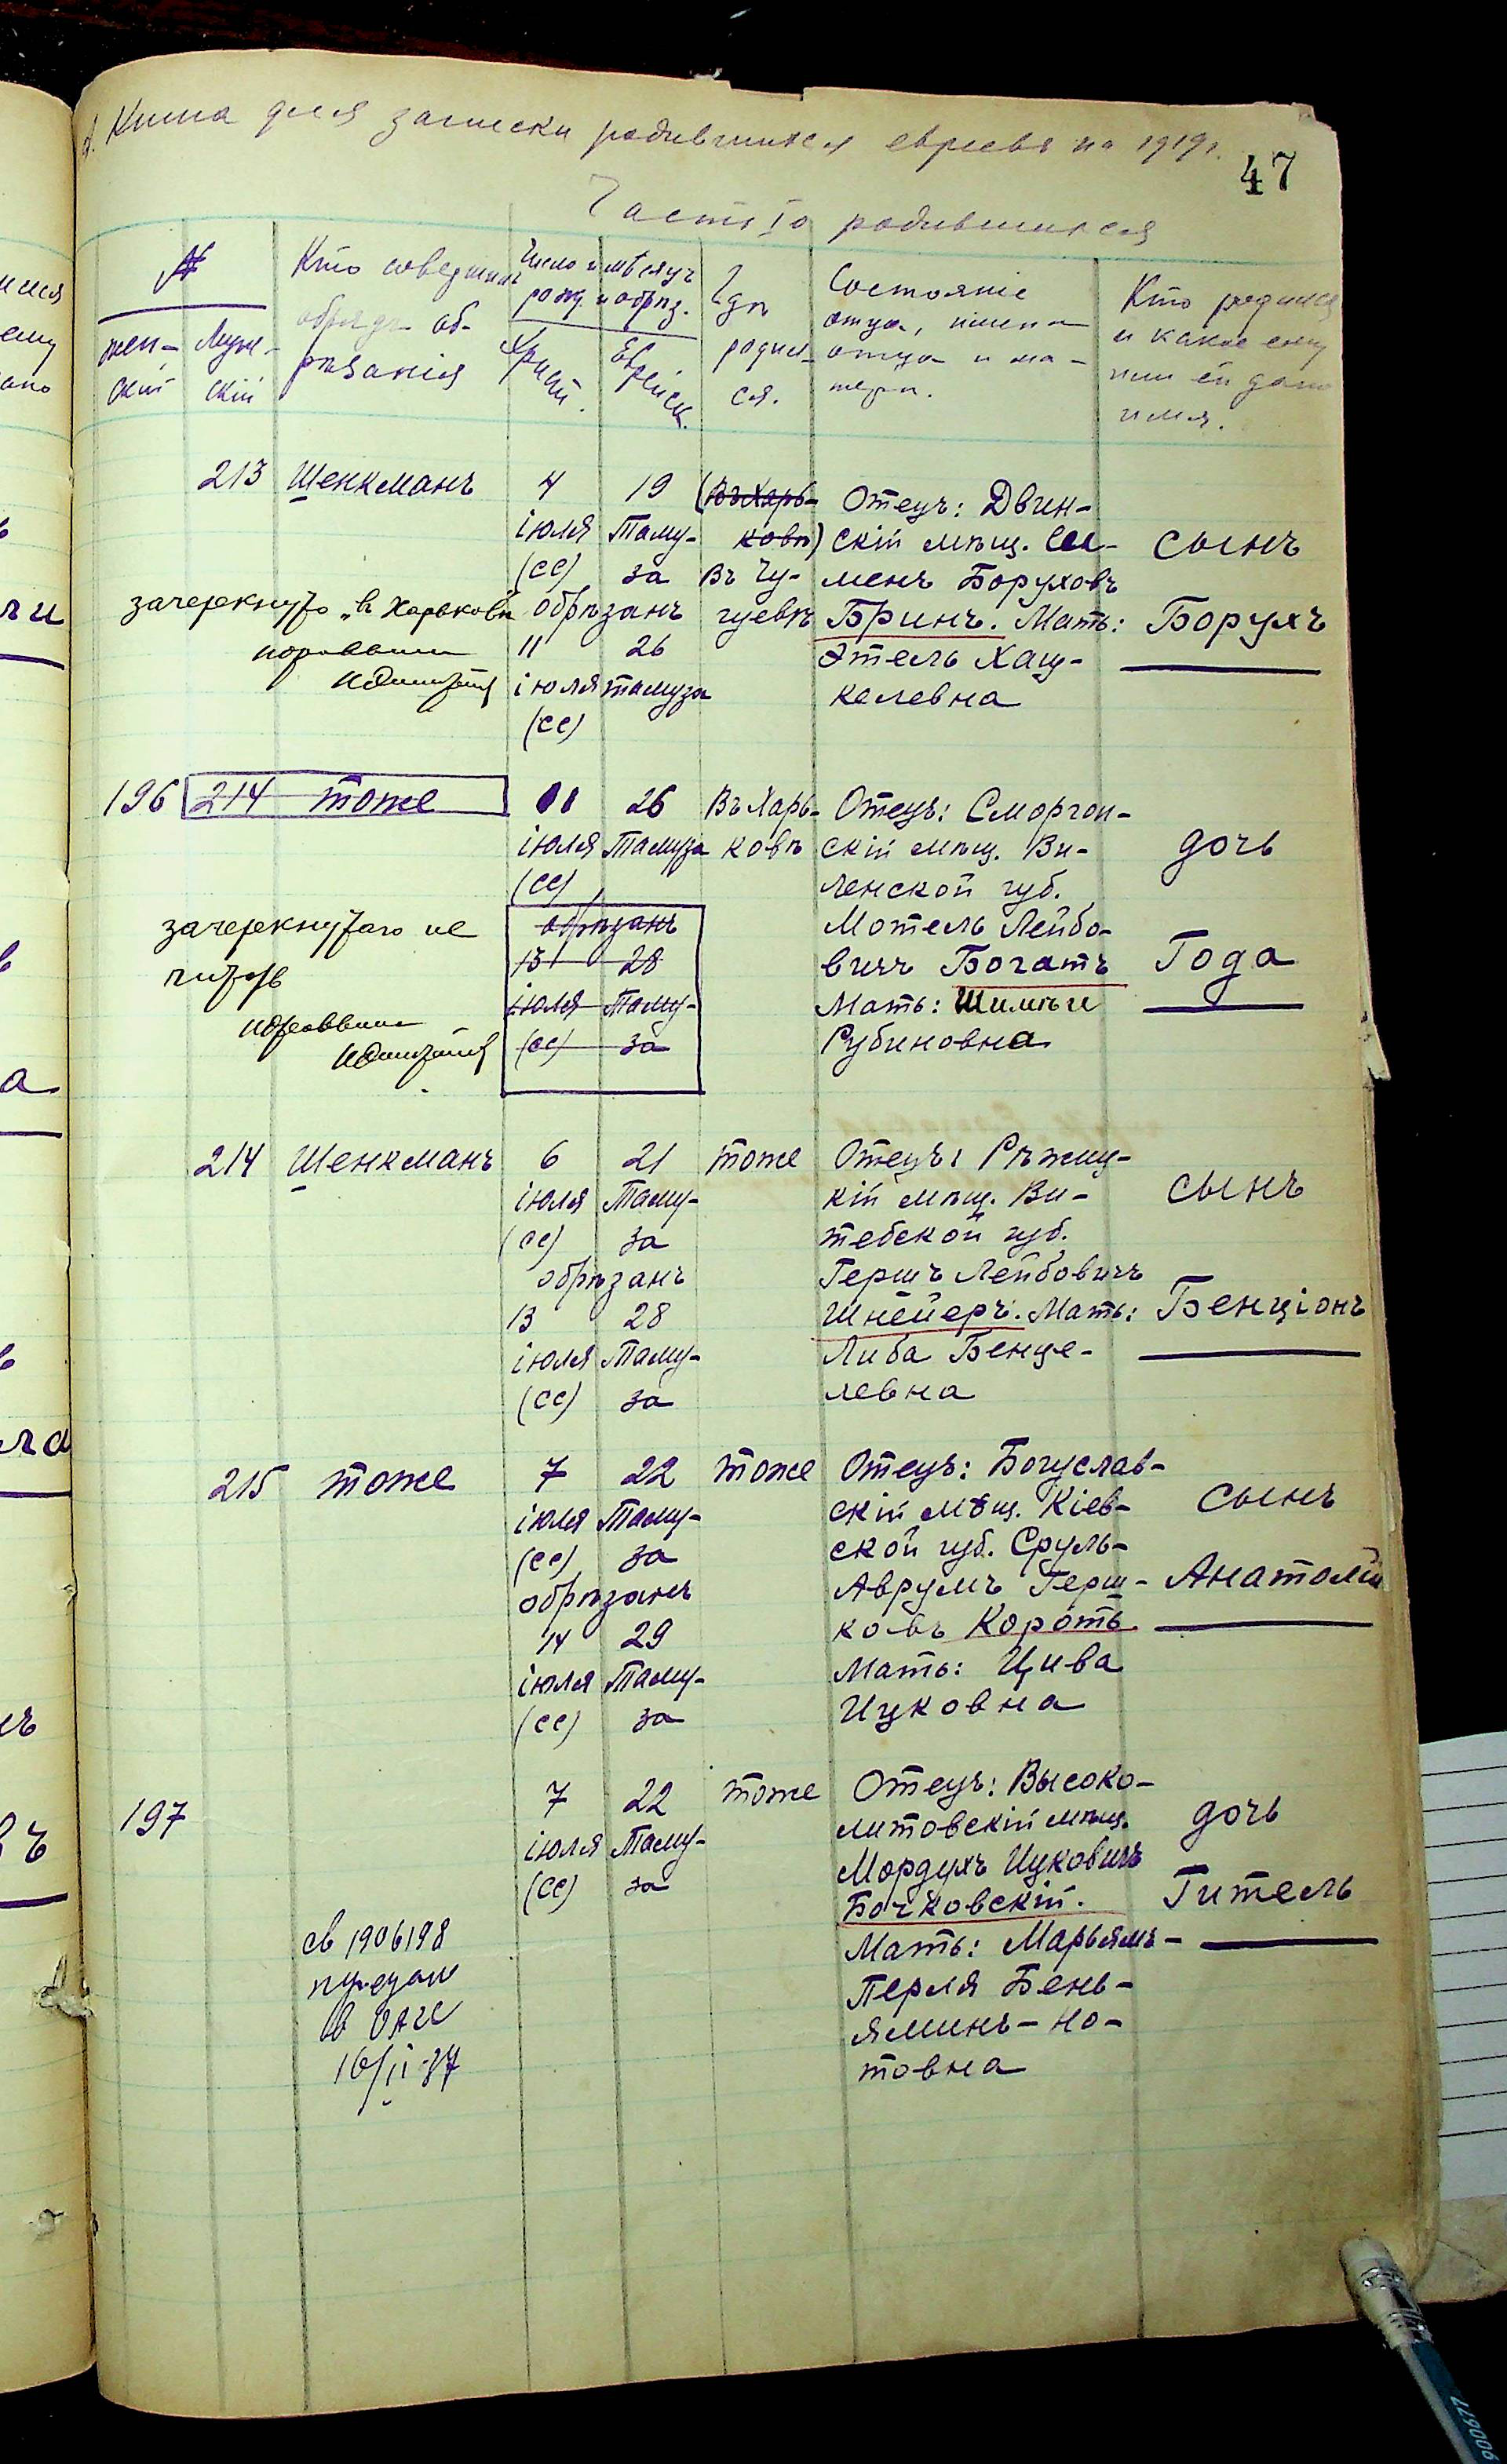 Книга для записки родившихся евреевъ на 1919 г.
47
Часть Iа родившихся
№
жен-
скій
Муж-
скій
Кто совершилъ
обрядъ об-
рѣзанія
Число и мѣсяцъ
рожд. и обрѣз.
Христ.
Еврейск.
Гдѣ
родил-
ся.
Состояніе
отца, имена
отца и ма-
тери.
Кто родился
и какое ему
или ей дано
имя.
213 Шенкманъ
4
іюля
(сс)
19
Таму-
за
обрѣзанъ
11
іюля
(сс)
26
тамуза
(Въ Харь-
ковѣ)
Въ Чу-
гуевѣ
Отецъ: Двин-
скій мѣщ. Се-
менъ Боруховъ
Бринъ. Мать:
Этель Хац-
келевна
сынъ
Борухъ
зачеркнуто „въ Харьковѣ
196 214 тоже
11
іюля
(сс)
26
Тамуза
обрѣзанъ
13
іюля
(сс)
28
Таму-
за
Въ Харь-
ковѣ
Отецъ: Сморгон-
скій мѣщ. Ви-
ленской губ.
Мотель Лейбо-
вичъ Богатъ
Мать:
Рубиновна
дочь
Года
зачеркнутаго не
читать
214 Шенкманъ
6
іюля
(сс)
21
Таму-
за
обрѣзанъ
13
іюля
(сс)
28
Таму-
за
тоже
Отецъ: Рѣжиц-
кій мѣщ. Ви-
тебской губ.
Гершъ Лейбовичъ
Шнейеръ. Мать:
Либа Бенце-
левна
сынъ
Бенціонъ
215 тоже
7
іюля
(сс)
22
Таму-
за
обрѣзанъ
14
іюля
(сс)
29
Таму-
за
тоже
Отецъ: Богуслав-
скій мѣщ. Кіев-
ской губ. Сруль-
Аврумъ Герш-
ковъ Коротъ
Мать: Цива
Ицковна
сынъ
Анатолій
197
7
іюля
(сс)
22
Таму-
за
тоже
Отецъ: Высоко-
литовскій мѣщ.
Мордухъ Ицковичъ
Бочковскій.
Мать: Марьямъ-
Перля Бень-
яминъ-Но-
товна
дочь
Гитель
св 1906198
16/II-37